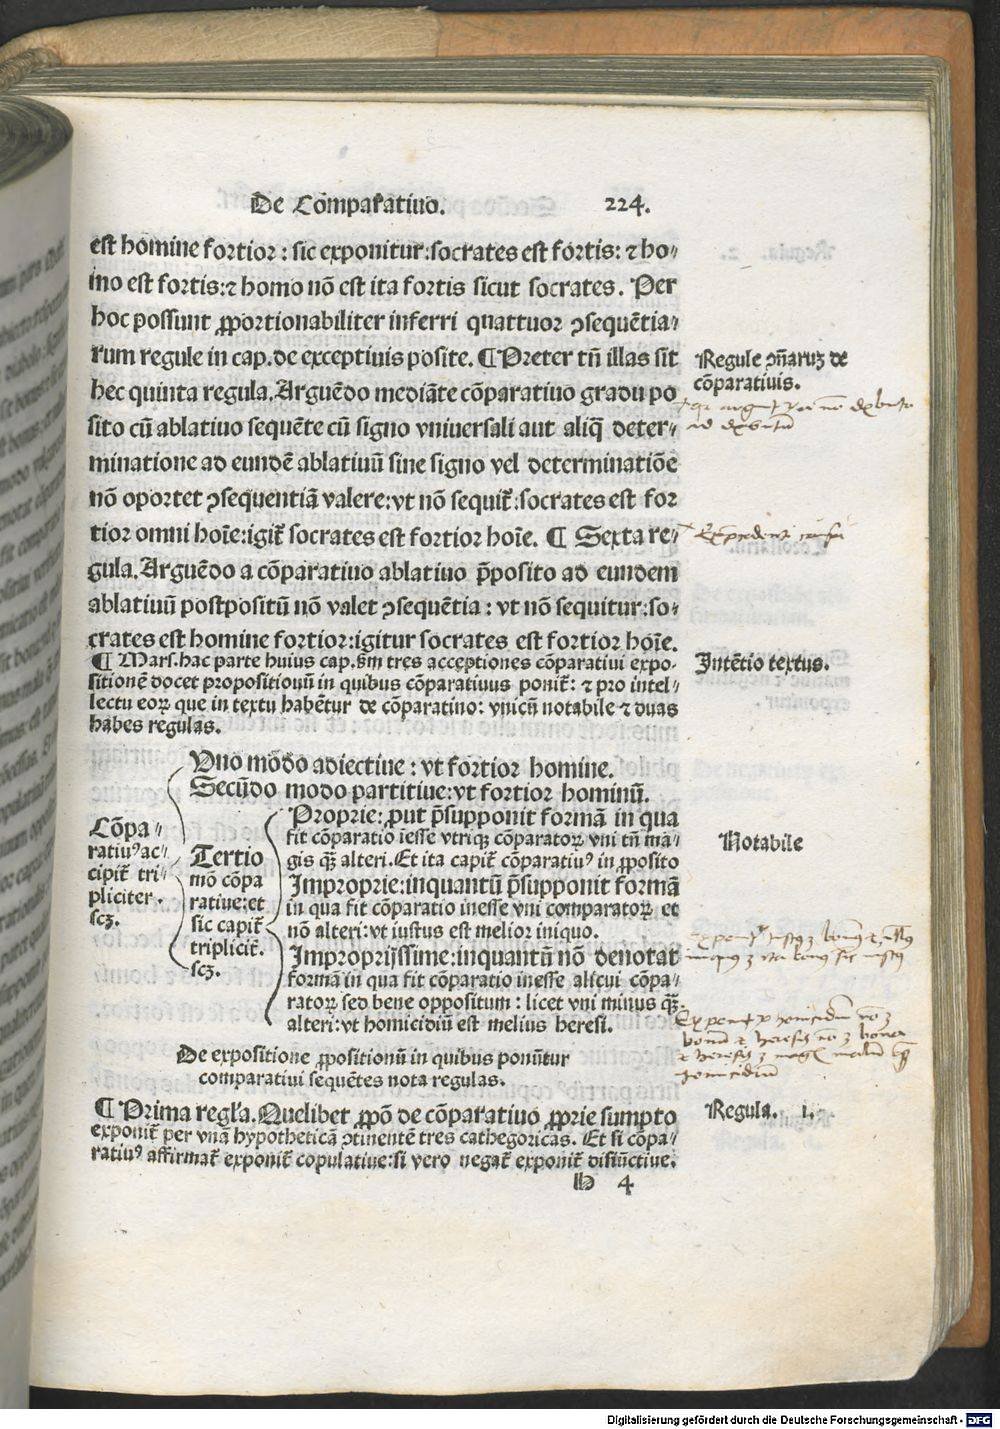 De Cōparatiuo. 224.
est homine fortior: sic exponitur: socrates est fortis: ⁊ ho-
mo est fortis: ⁊ homo nō est ita fortis sicut socrates. Per
hoc possunt ꝓportionabiliter inferri quattuor ꝯsequētia-
rum regule in cap. de exceptiuis posite. ¶ Preter tn̄ illas sit
hec quinta regula. Arguēdo mediāte cōparatiuo gradu po
sito cū ablatiuo sequēte cū signo vniuersali aut aliq̄ deter-
minatione ad eundē ablatiuū sine signo vel determinatiōe
nō oportet ꝯsequentiā valere: vt nō sequit̄: socrates est for
tior omni hoīe: igit̄ socrates est fortior hoīe. ¶ Sexta re-
gula. Arguēdo a cōparatiuo ablatiuo p̄posito ad eundem
ablatiuū postpositū nō valet ꝯsequētia: vt nō sequitur: so-
crates est homine fortior: igitur socrates est fortior hoīe.
Regule ꝯn̄aruꝫ de
cōparatiuis.
¶ Mars. hac parte huius cap. scḋm tres acceptiones cōparatiui expo-
sitionē docet propositionū in quibus cōparatiuus ponit̄: ⁊ pro intel-
lectu eoꝝ que in textu habētur de cōparatino: vnicū notabile ⁊ duas
habes regulas.
Intētio textus.
Cōpa-
ratiuꝰ ac-
cipit̄ tri-
pliciter.
scꝫ.
Vno mōdo adiectiue: vt fortior homine.
Secūdo modo partitiue: vt fortior hominū.
Tertio
mō cōpa
ratiue: et
sic capit̄
triplicit̄.
scꝫ.
Proprie: put p̄supponit formā in qua
fit cōparatio īesse vtriqꝫ cōparatoꝝ vni tn̄ ma-
gis qꝫ̄ alteri. Et ita capit̄ cōparatiuꝰ in ꝓposito
Improprie: inquantū p̄supponit formā
in qua fit cōparatio inesse vni comparatoꝝ et
nō alteri: vt iustus est melior iniquo.
Improprijssime: inquantū nō denotat
formā in qua fit cōparatio inesse alicui cōpa-
ratoꝝ sed bene oppositum: licet vni minus qꝫ̄
alteri: vt homicidiū est melius heresi.
Notabile
De expositione ꝓpositionū in quibus ponūtur
comparatiui sequētes nota regulas.
¶ Prima regl'a. Quelibet ꝓpō de cōparatiuo ꝓprie sumpto
exponit̄ per vnā hypotheticā ꝯtinentē tres cathegoricas. Et si cōpa-
ratiuꝰ affirmat̄ exponit̄ copulatiue: si vero negat̄ exponit̄ disiūctiue.
Regula. 1.
h 4
Digitalisierung gefördert durch die Deutsche Forschungsgemeinschaft - DFG